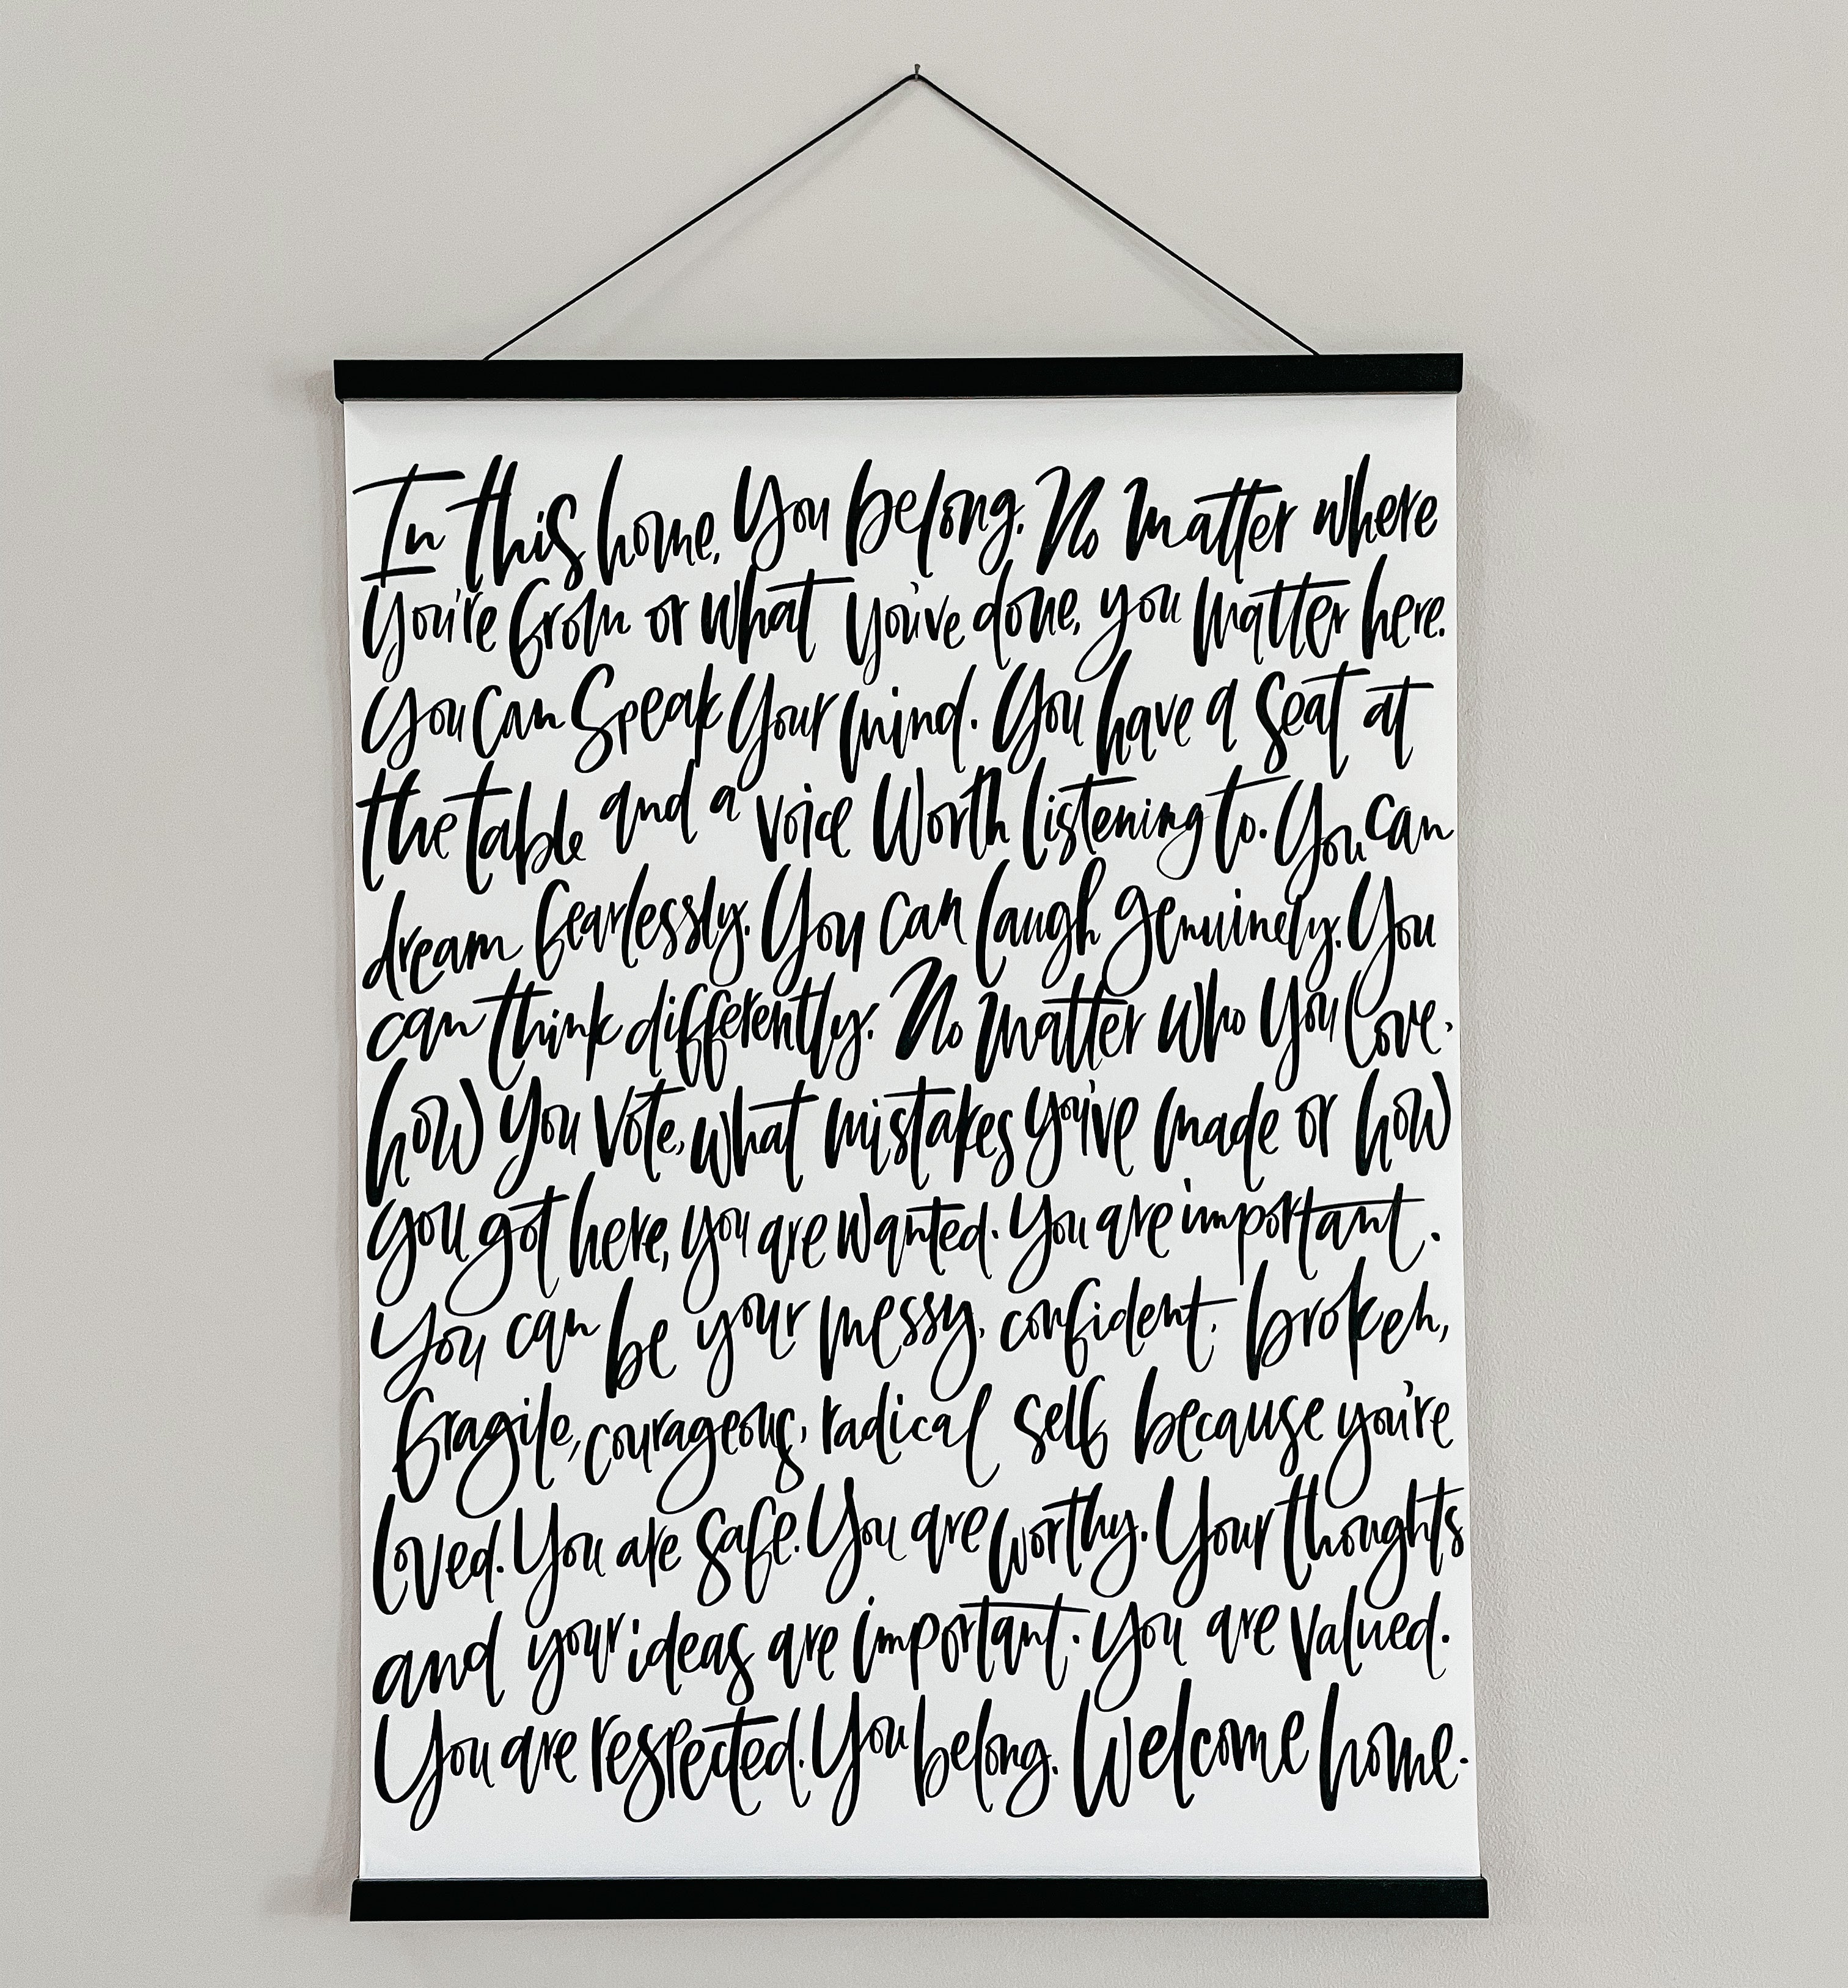 In this home, you belong. No matter where
you're from or what you've done, you matter here.
You can speak your mind. You have a seat at
the table and a voice worth listening to. You can
dream fearlessly. You can laugh genuinely. You
can think differently. No matter who you love,
how you vote, what mistakes you've made or how
you got here, you are wanted. You are important.
You can be your messy, confident, broken,
fragile, courageous, radical self because you're
loved. You are safe. You are worthy. Your thoughts
and your ideas are important. You are valued.
You are respected. You belong. Welcome home.